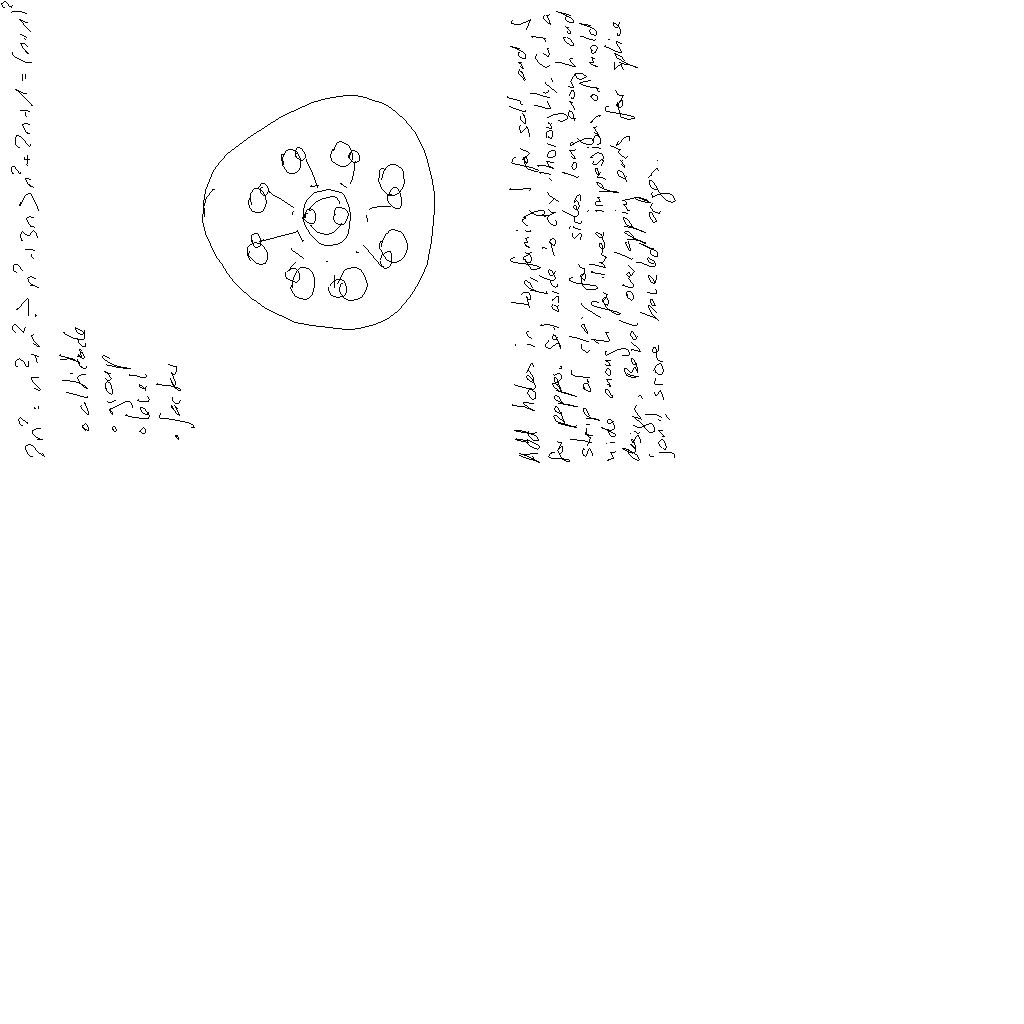 2n² = n² + n² > n² + 3n > n² + 2n + 1 = (n+1)²
• altitude
• group
• level
• factor
Add holes in top, forming 1 for salt and S
for pepper. Set aside to dry thoroughly. Cut a
strip of clay for sides long enough and
wide enough for three impressions of mold
design. Bevel overlapping ends for splice
joint, score beveled edges.